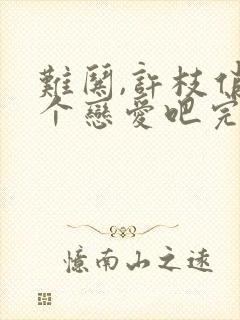 難闋,許枝俏
个戀愛吧完
憶南山之遠